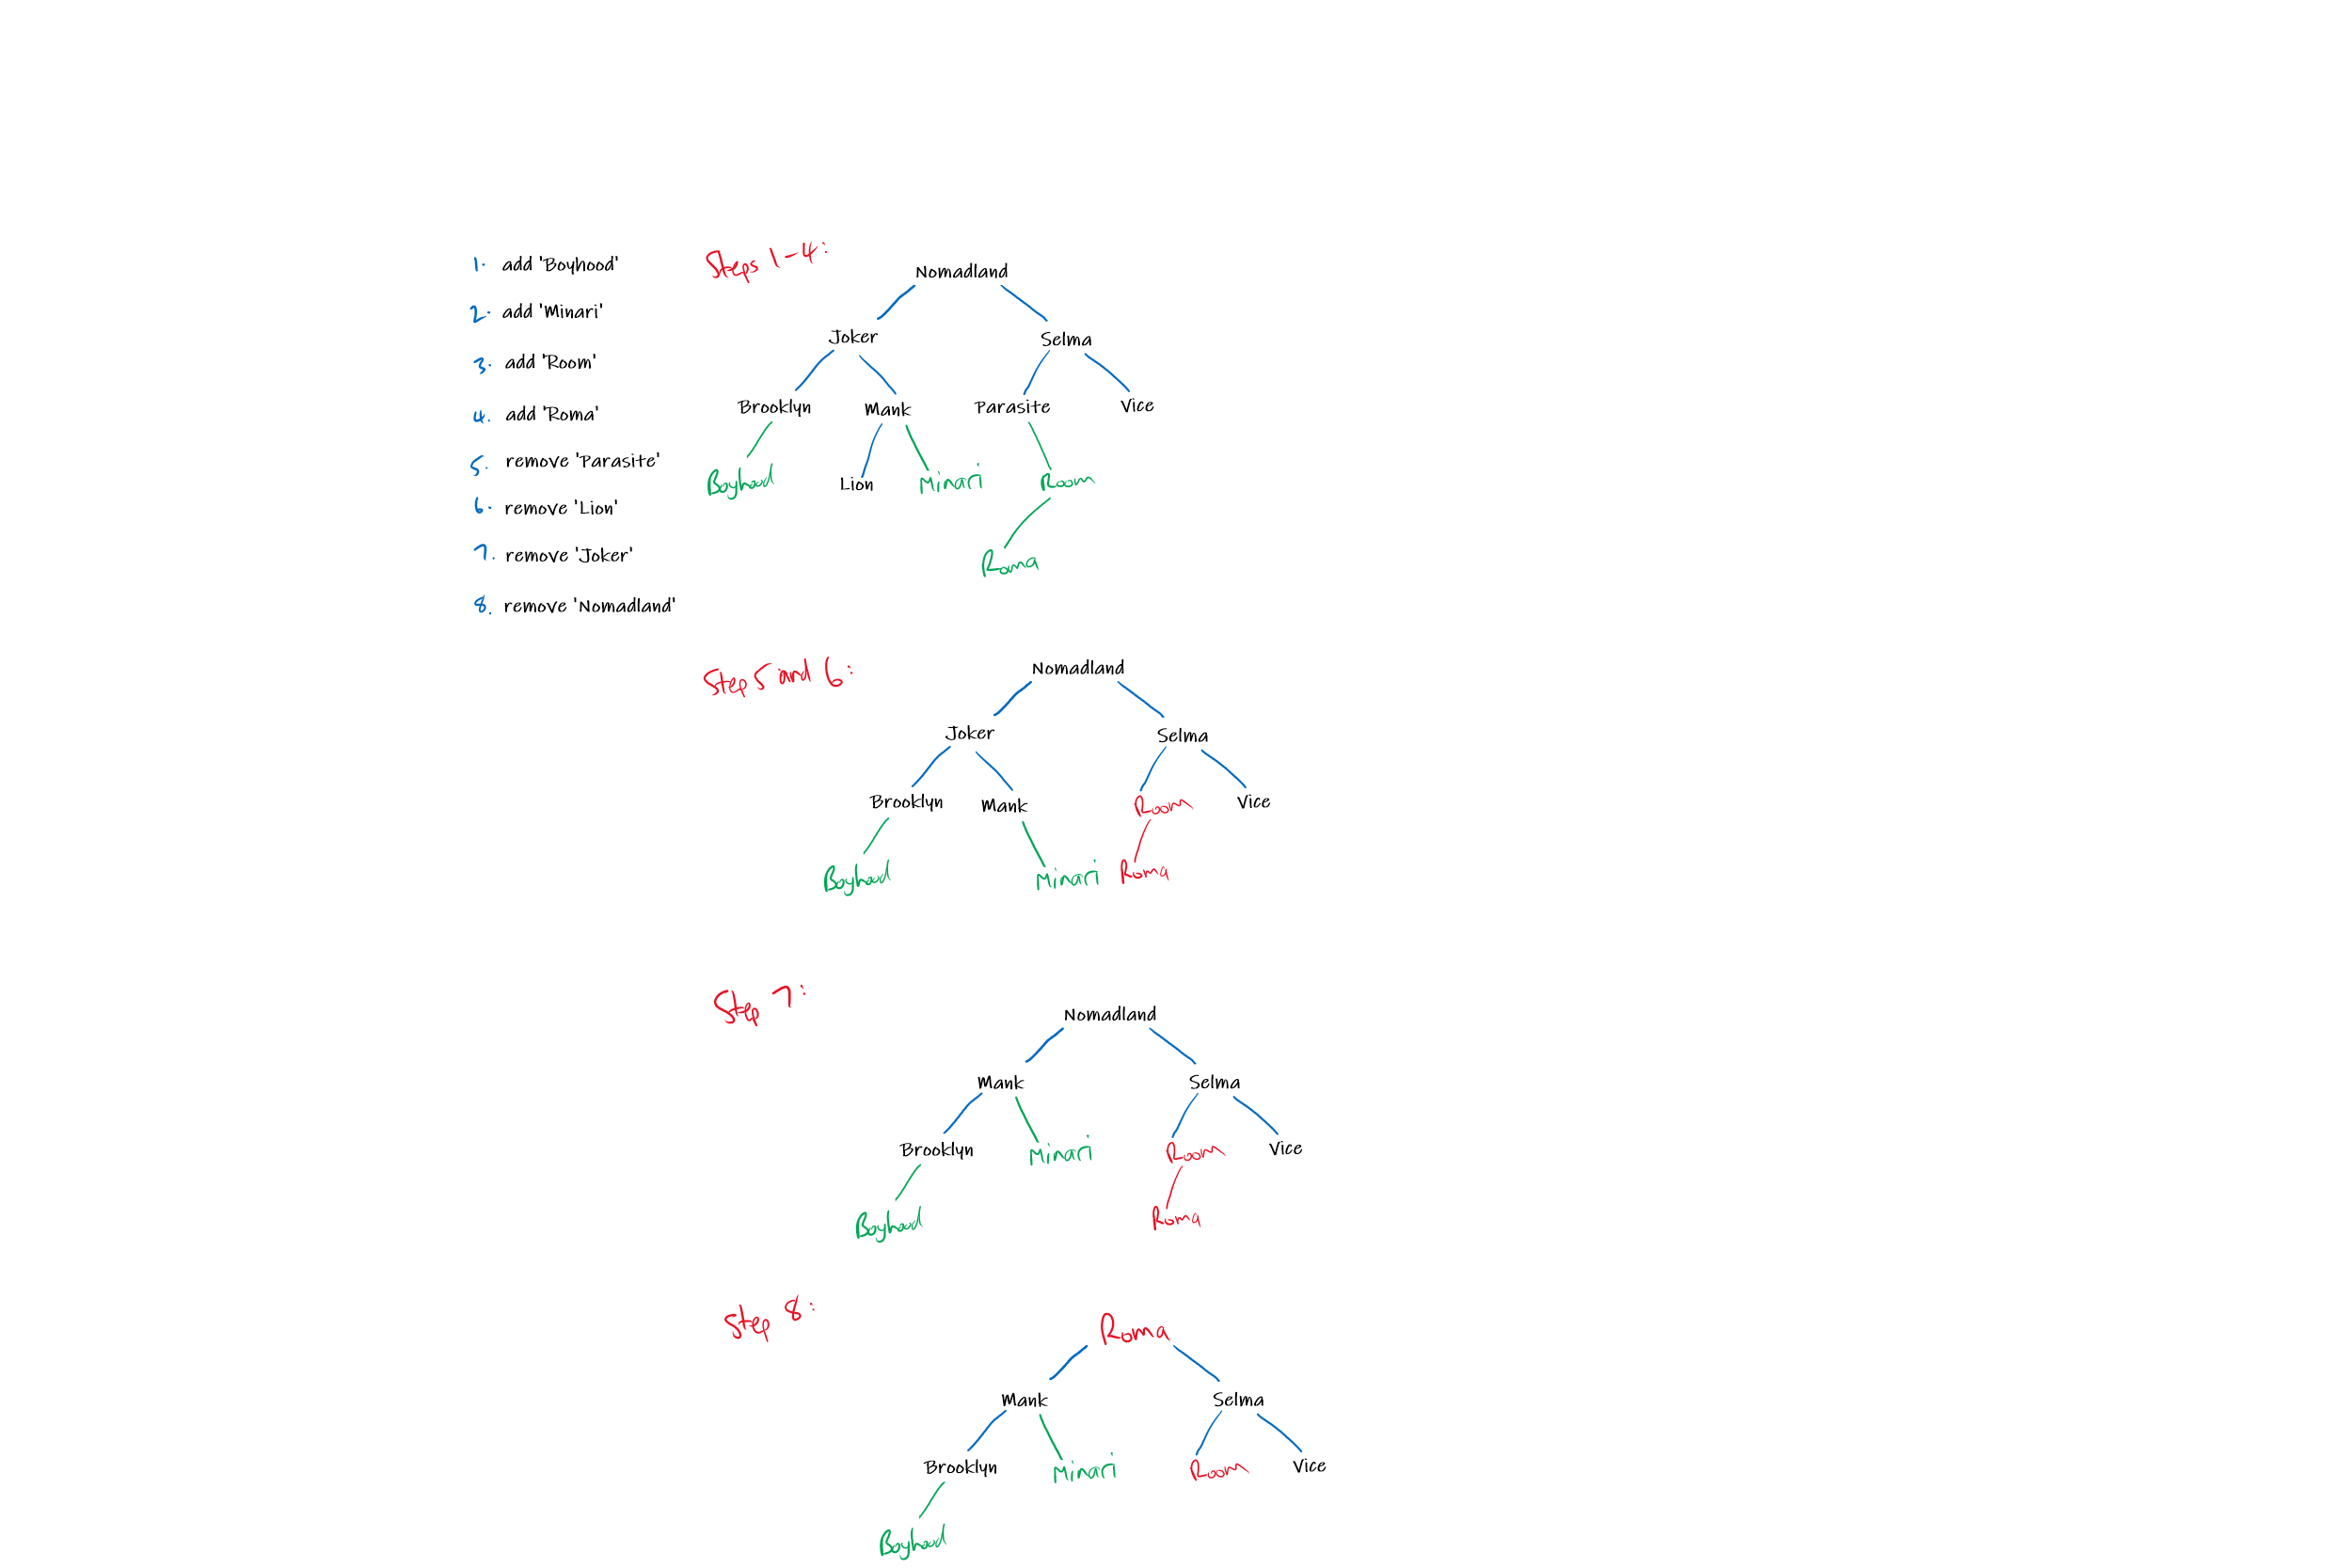 1. add 'Boyhood'
2. add 'Minari'
3. add 'Room'
4. add 'Roma'
5. remove 'Parasite'
6. remove 'Lion'
7. remove 'Joker'
8. remove 'Nomadland'
Steps 1-4:
Nomadland
Joker Selma
Brooklyn Mank Parasite Vice
Boyhood Lion Minari Room
Roma
Step 5 and 6:
Nomadland
Joker Selma
Brooklyn Mank Room Vice
Boyhood Minari Roma
Step 7:
Nomadland
Mank Selma
Brooklyn Minari Room Vice
Boyhood Roma
Step 8:
Roma
Mank Selma
Brooklyn Minari Room Vice
Boyhood